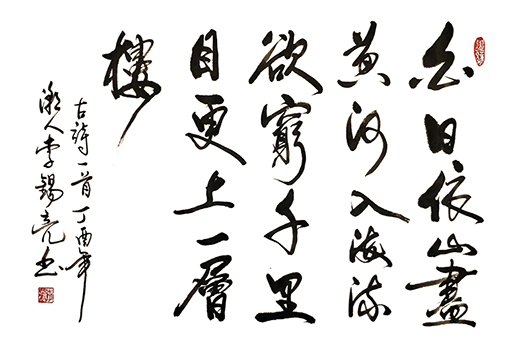 白日依山盡
黄河入海流
欲窮千里
目更上一層
樓
古詩一首丁酉年
潮人李錫亮书